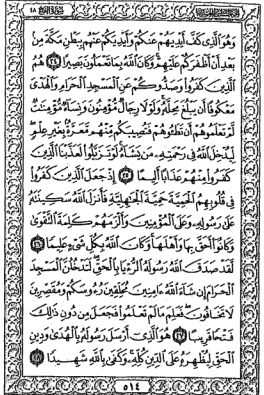 وَهُوَ ٱلَّذِى كَفَّ أَيْدِيَهُمْ عَنكُمْ وَأَيْدِيَكُمْ عَنْهُم بِبَطْنِ مَكَّةَ مِنۢ
بَعْدِ أَنْ أَظْفَرَكُمْ عَلَيْهِمْ ۚ وَكَانَ ٱللَّهُ بِمَا تَعْمَلُونَ بَصِيرًا ﴿٢٤﴾ هُمُ
ٱلَّذِينَ كَفَرُوا۟ وَصَدُّوكُمْ عَنِ ٱلْمَسْجِدِ ٱلْحَرَامِ وَٱلْهَدْىَ
مَعْكُوفًا أَن يَبْلُغَ مَحِلَّهُۥ ۚ وَلَوْلَا رِجَالٌ مُّؤْمِنُونَ وَنِسَآءٌ مُّؤْمِنَٰتٌ
لَّمْ تَعْلَمُوهُمْ أَن تَطَـُٔوهُمْ فَتُصِيبَكُم مِّنْهُم مَّعَرَّةٌۢ بِغَيْرِ عِلْمٍ ۖ
لِّيُدْخِلَ ٱللَّهُ فِى رَحْمَتِهِۦ مَن يَشَآءُ ۚ لَوْ تَزَيَّلُوا۟ لَعَذَّبْنَا ٱلَّذِينَ
كَفَرُوا۟ مِنْهُمْ عَذَابًا أَلِيمًا ﴿٢٥﴾ إِذْ جَعَلَ ٱلَّذِينَ كَفَرُوا۟
فِى قُلُوبِهِمُ ٱلْحَمِيَّةَ حَمِيَّةَ ٱلْجَٰهِلِيَّةِ فَأَنزَلَ ٱللَّهُ سَكِينَتَهُۥ
عَلَىٰ رَسُولِهِۦ وَعَلَى ٱلْمُؤْمِنِينَ وَأَلْزَمَهُمْ كَلِمَةَ ٱلتَّقْوَىٰ
وَكَانُوٓا۟ أَحَقَّ بِهَا وَأَهْلَهَا ۚ وَكَانَ ٱللَّهُ بِكُلِّ شَىْءٍ عَلِيمًا ﴿٢٦﴾
لَّقَدْ صَدَقَ ٱللَّهُ رَسُولَهُ ٱلرُّءْيَا بِٱلْحَقِّ ۖ لَتَدْخُلُنَّ ٱلْمَسْجِدَ
ٱلْحَرَامَ إِن شَآءَ ٱللَّهُ ءَامِنِينَ مُحَلِّقِينَ رُءُوسَكُمْ وَمُقَصِّرِينَ
لَا تَخَافُونَ ۖ فَعَلِمَ مَا لَمْ تَعْلَمُوا۟ فَجَعَلَ مِن دُونِ ذَٰلِكَ
فَتْحًا قَرِيبًا ﴿٢٧﴾ هُوَ ٱلَّذِىٓ أَرْسَلَ رَسُولَهُۥ بِٱلْهُدَىٰ وَدِينِ
ٱلْحَقِّ لِيُظْهِرَهُۥ عَلَى ٱلدِّينِ كُلِّهِۦ ۚ وَكَفَىٰ بِٱللَّهِ شَهِيدًا ﴿٢٨﴾
٥١٤